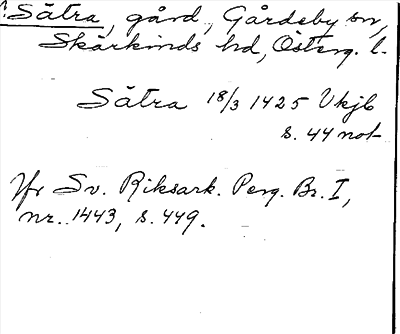 Sätra, gård, Gårdeby sn,
Skärkinds hd, Österg. l.
Sätra 18/3 1425 Vkjb
s. 44 not
Jfr Sv. Riksark. Perg. Br. I,
nr. 1443, s. 449.